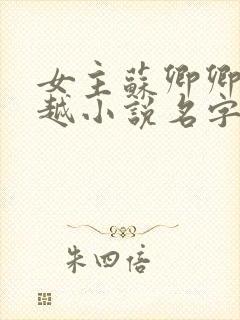 女主蘇卿卿
越小說名字
朱四倍